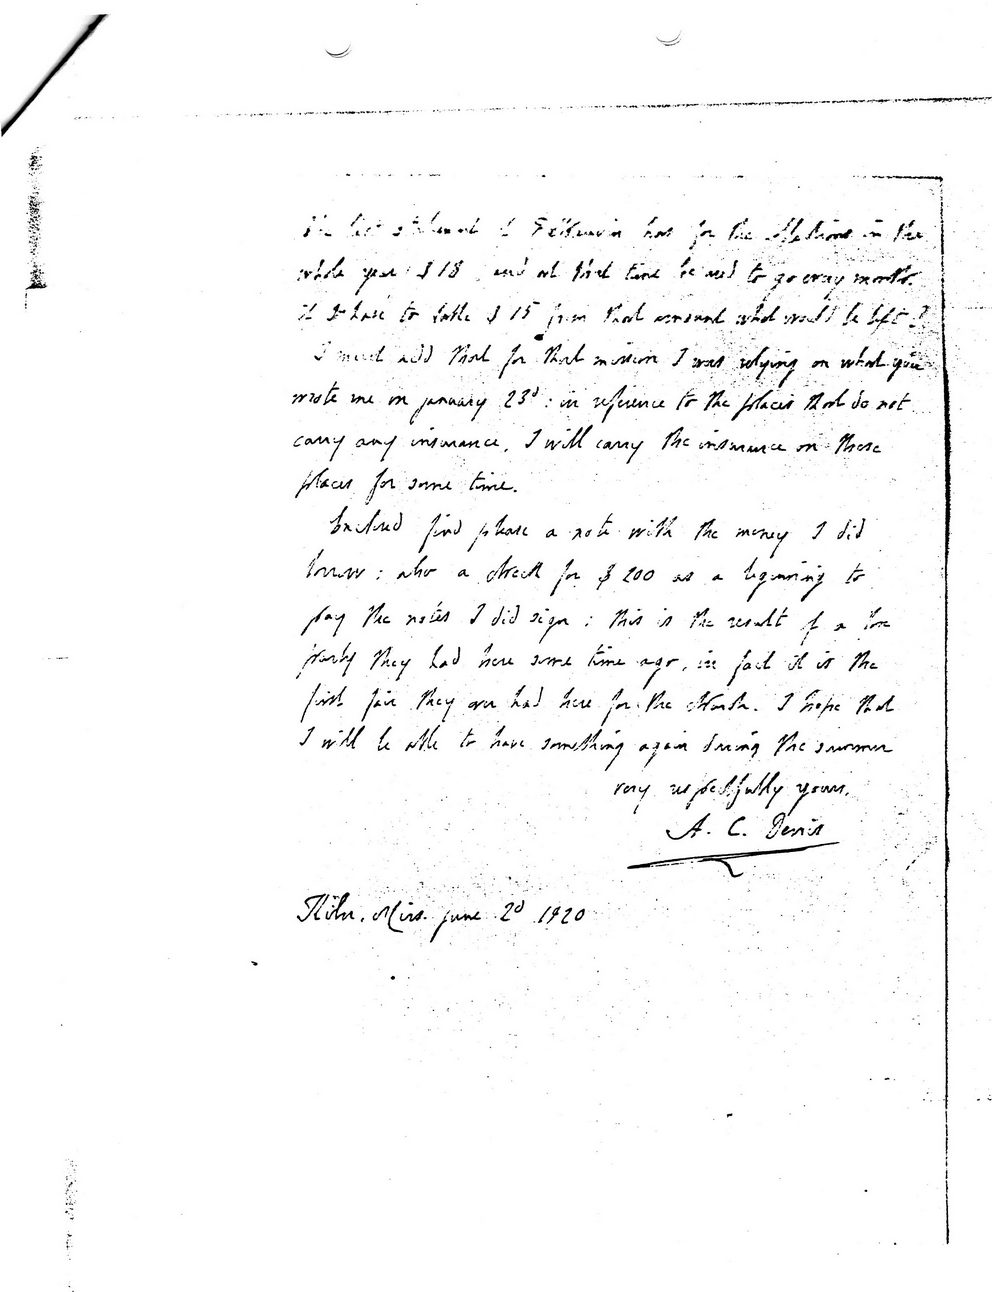 The last statement of has for the Missions in the
whole year $18 and at that time he used to go every month.
if I have to take $15 from that amount what would be left?
I must add that for that mission I was relying on what you
wrote me on january 23d: in reference to the places that do not
carry any insurance, I will carry the insurance on those
places for some time.
Enclosed find please a note with the money I did
borrow: also a check for $200 as a beginning to
pay the notes I did sign: this is the result of a
party they had here some time ago, in fact it is the
first fair they ever had here for the church. I hope that
I will be able to have something again during the summer
very respectfully yours,
A. C. Denis
Kiln, Miss. june 2d 1920